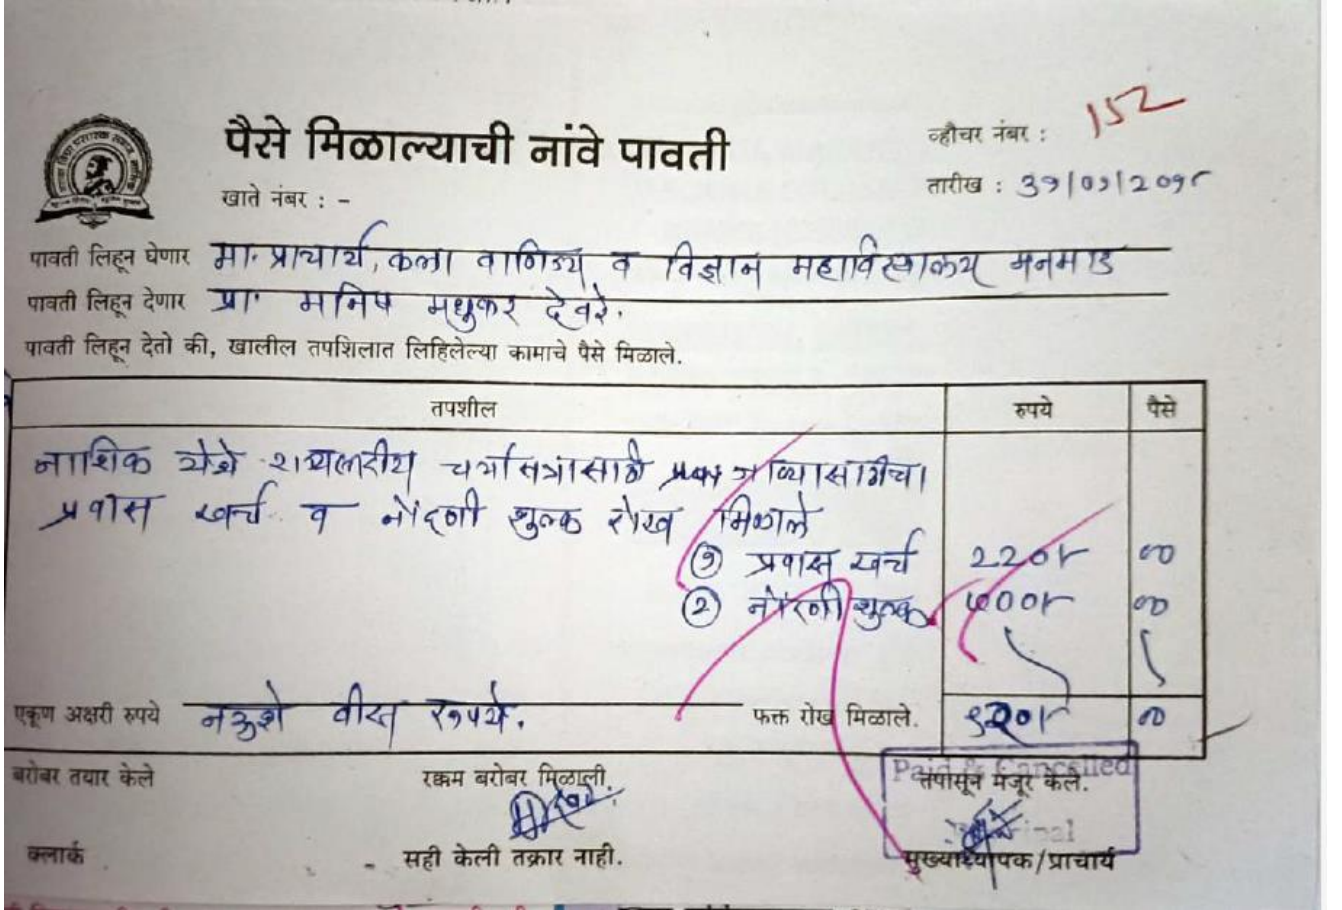 पैसे मिळाल्याची नांवे पावती
व्हौचर नंबर : 152
खाते नंबर : -
तारीख : ३१/०१/२०१८
पावती लिहून घेणार मा. प्राचार्य, कला वाणिज्य व विज्ञान महाविद्यालय मनमाड
पावती लिहून देणार प्रा. मनिष मधुकर देवरे.
पावती लिहून देतो की, खालील तपशिलात लिहिलेल्या कामाचे पैसे मिळाले.
तपशील रुपये पैसे
नाशिक येथे राज्यस्तरीय चर्चासत्रासाठी
प्रवास खर्च व नोंदणी शुल्क रोख मिळाले
① प्रवास खर्च २२०/- ००
② नोंदणी शुल्क ७००/- ००
एकूण अक्षरी रुपये नऊशे वीस रुपये. फक्त रोख मिळाले. ९२०/- ००
बरोबर तयार केले रक्कम बरोबर मिळाली. तपासून मंजूर केले.
Paid & Cancelled
Principal
क्लार्क - सही केली तक्रार नाही. मुख्याध्यापक/प्राचार्य